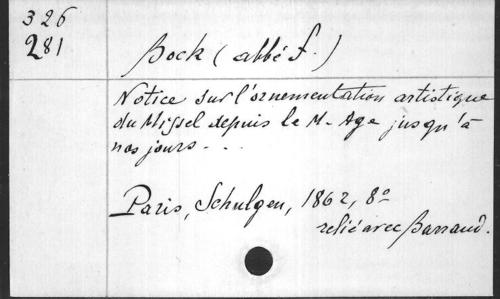 326
281
Bock (abbé f.)
Notice sur l'ornementation artistique
du Missel depuis le M-Age jusqu'à
nos jours - . .
Paris, Schulgen, 1862, 8º
relié avec Barraud.